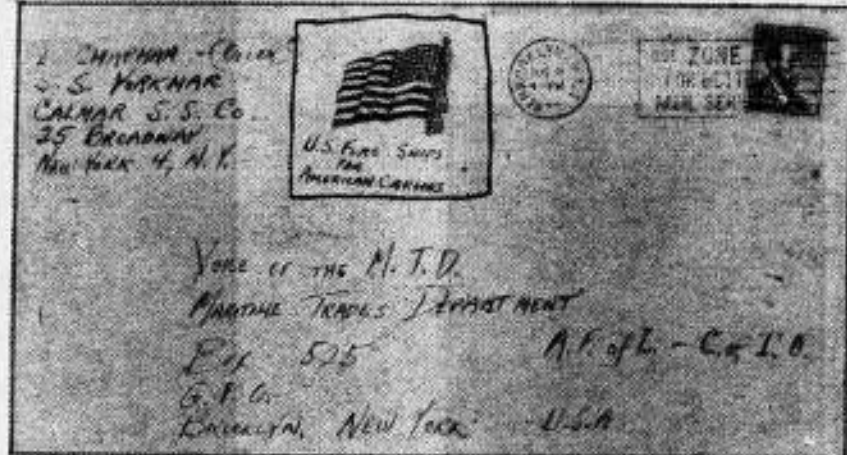 CHAPMAN
S. S. YORKMAR
CALMAR S. S. CO.
25 BROADWAY
NEW YORK 4, N.Y.
U.S. FLAG SHIPS
FOR
AMERICAN CARGOES
ZONE
FOR
MAIL
VOICE OF THE M.T.D.
MARITIME TRADES DEPARTMENT
BOX 525
A.F. of L. - C. of I.O.
G.P.O.
BROOKLYN, NEW YORK U.S.A